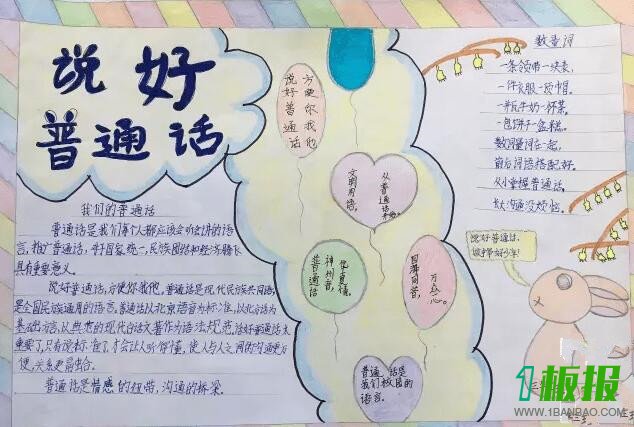 说好
普通话
我们的普通话
普通话是我们每个人都应该会听会讲的语
言,推广普通话,对国家统一,民族团结和经济腾飞
具有重要意义。
说好普通话,方便你我他,普通话是现代民族共同语,
是全国民族通用的语言。普通话以北京语音为标准,以北方话为
基础方言,以典范的现代白话文著作为语法规范
重要了,只有说标准了,才会让人听得懂,使人与人之间的沟通更方
便,关系更融洽
普通话是情感的纽带,沟通的桥梁。
方便你我他
说好普通话
从普通话
文明用语,
华夏情。
神州音,
普通话
万众心。
普通话是
我们校园的
语言。
数量词
一条领带一块表,
一件衣服一顶帽。
一瓶牛奶一杯茶。
一包饼干一盒糕。
数词量词在一起,
前后词语搭配好。
从小掌握普通话,
长大沟通没烦恼。
说好普通话,
做好少年!
1板报
WWW.1BANBAO.COM